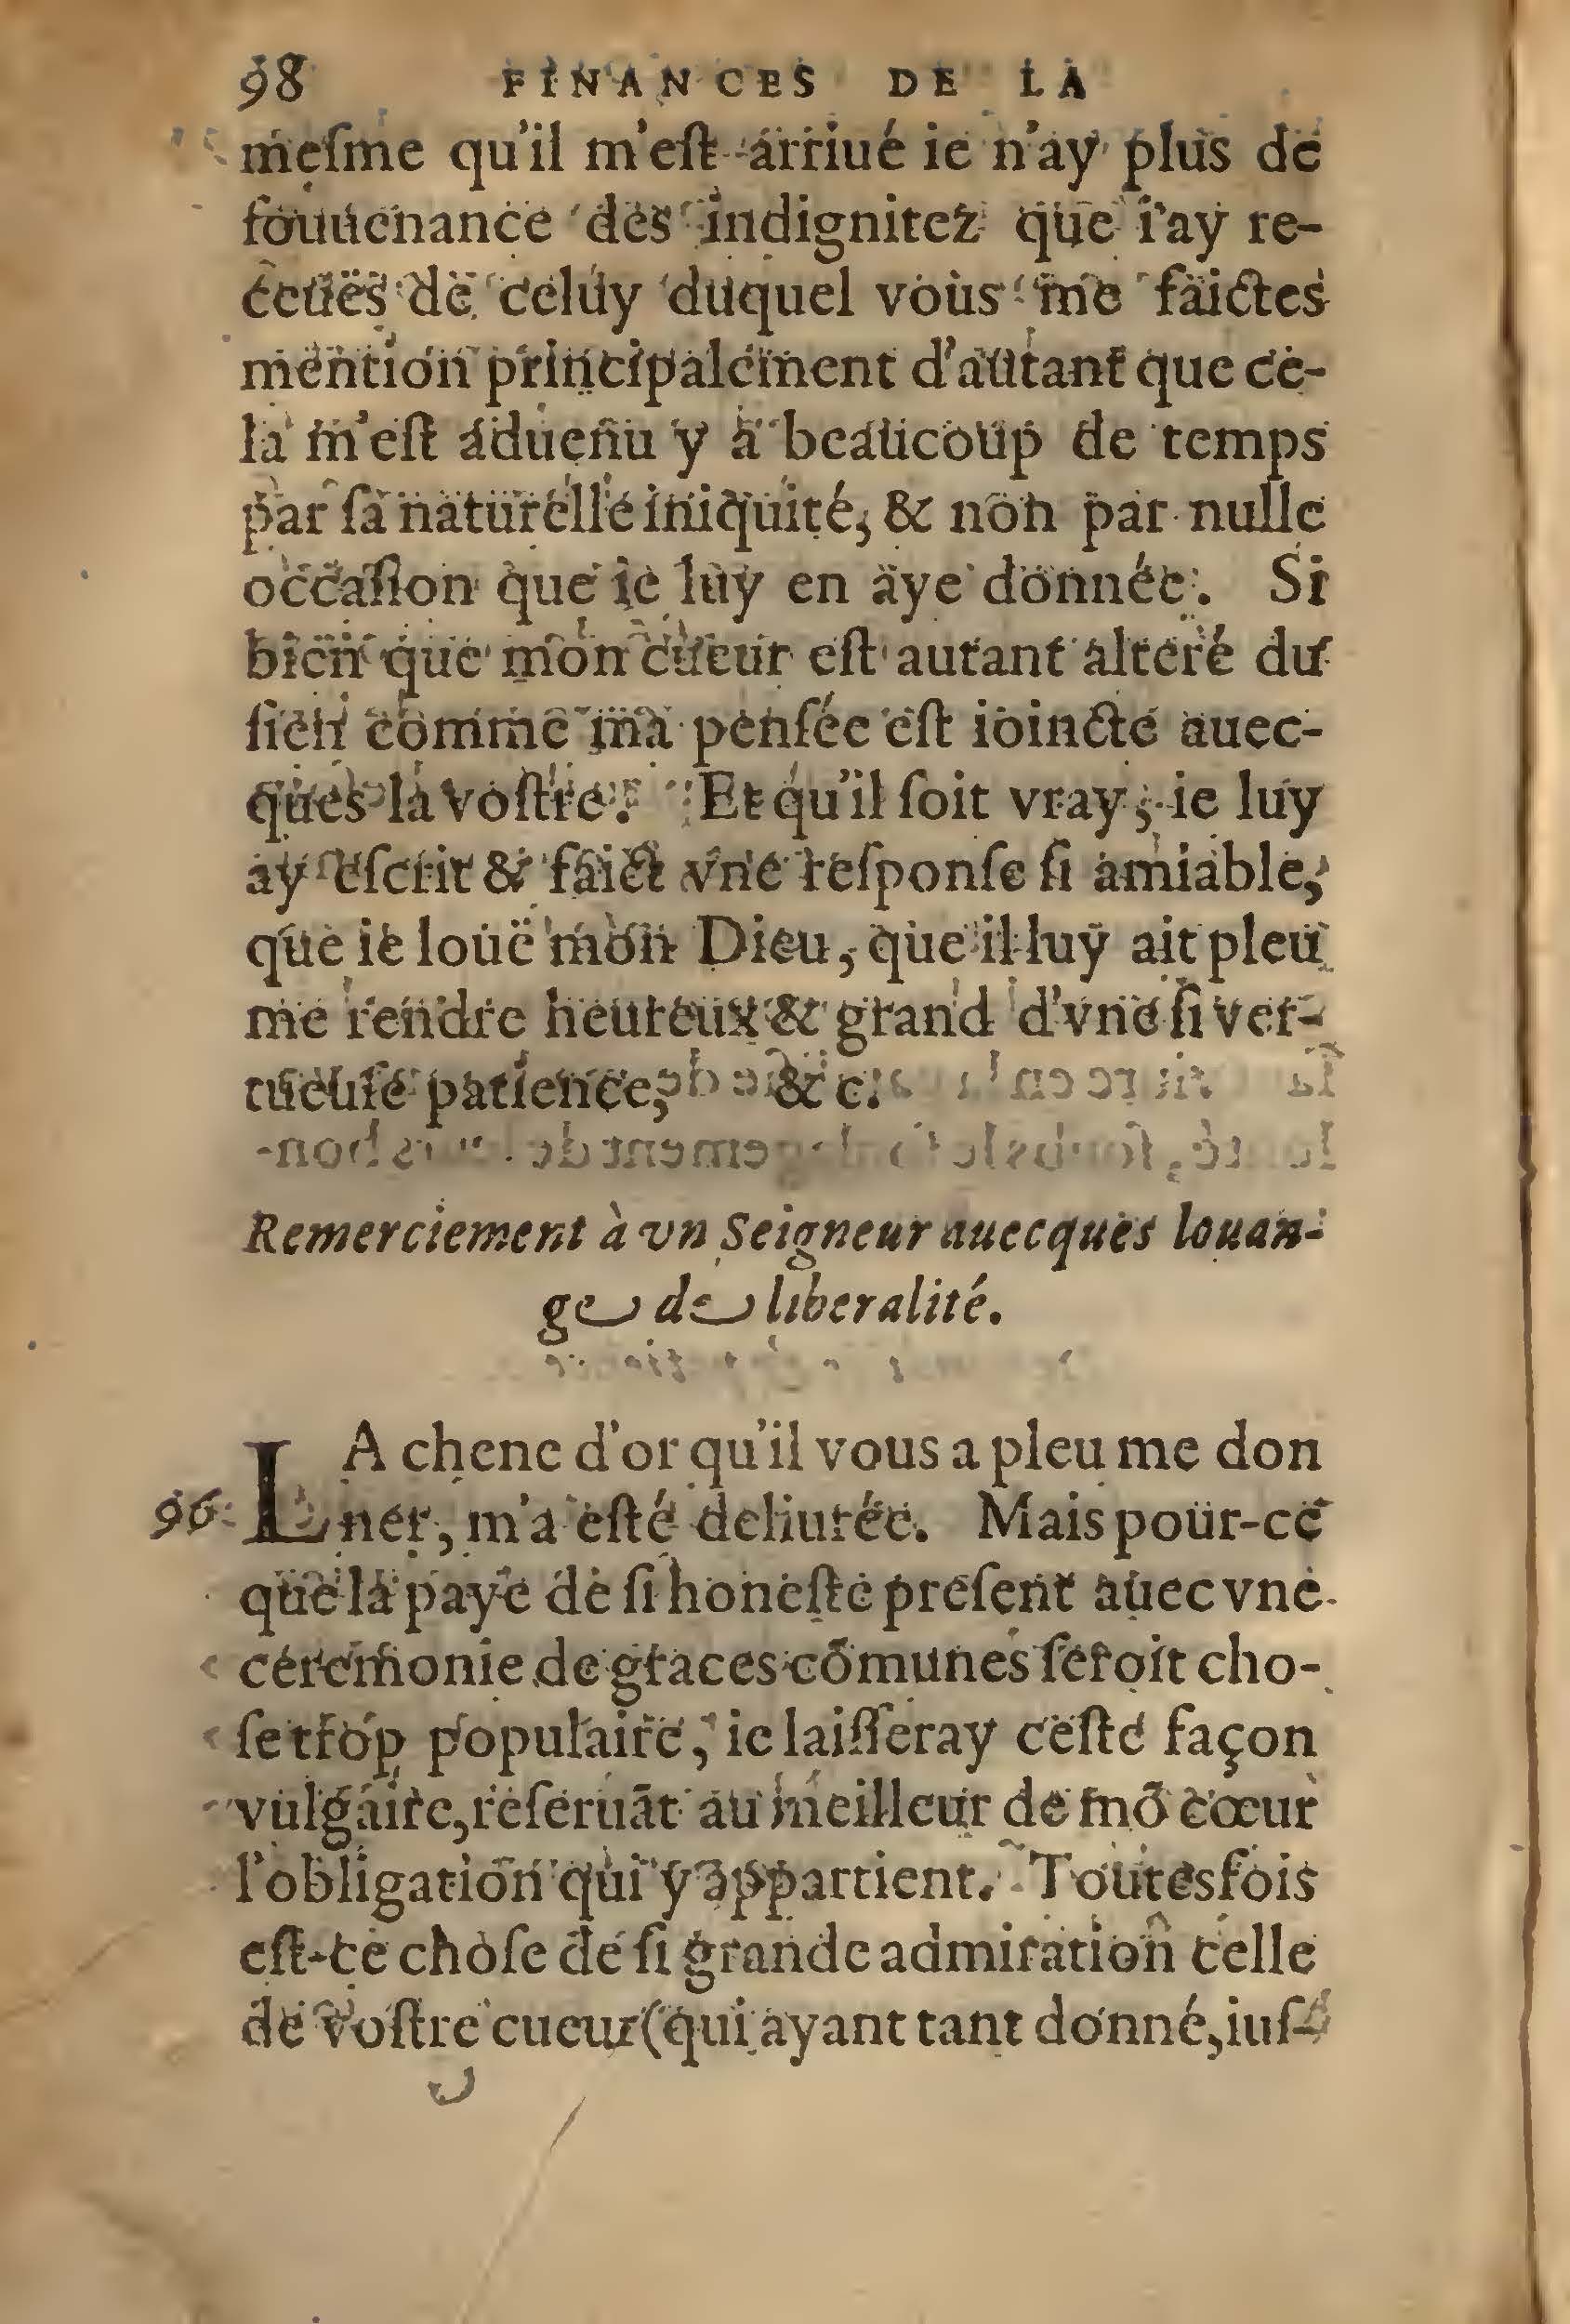 98 FINANCES DE LA
meſme qu'il m'eſt arriué ie n'ay plus de
ſouuenance des indignitez que i'ay re-
ceuës de celuy duquel vous me faictes
mention principalement d'autant que ce-
la m'eſt aduenu y a beaucoup de temps
par ſa naturelle iniquité, & non par nulle
occaſion que ie luy en aye donnée. Si
bien que mon cueur eſt autant alteré du
ſien comme ma penſée eſt ioincte auec-
ques la voſtre. Et qu'il ſoit vray, ie luy
ay eſcrit & faict vne reſponſe ſi amiable,
que ie louë mon Dieu, que il luy ait pleu
me rendre heureux & grand d'vne ſi ver-
tueuſe patience, &c.
Remerciement à vn Seigneur auecques louan-
ge de liberalité.
LA chene d'or qu'il vous a pleu me don
96. ner, m'a eſté deliurée. Mais pour-ce
que la paye de ſi honeſte preſent auec vne
ceremonie de graces cõmunes ſeroit cho-
ſe trop populaire, ie laiſſeray ceſte façon
vulgaire, reſeruāt au meilleur de mõ cœur
l'obligation qui y appartient. Toutesfois
eſt-ce choſe de ſi grande admiration celle
de voſtre cueur (qui ayant tant donné, iuſ-